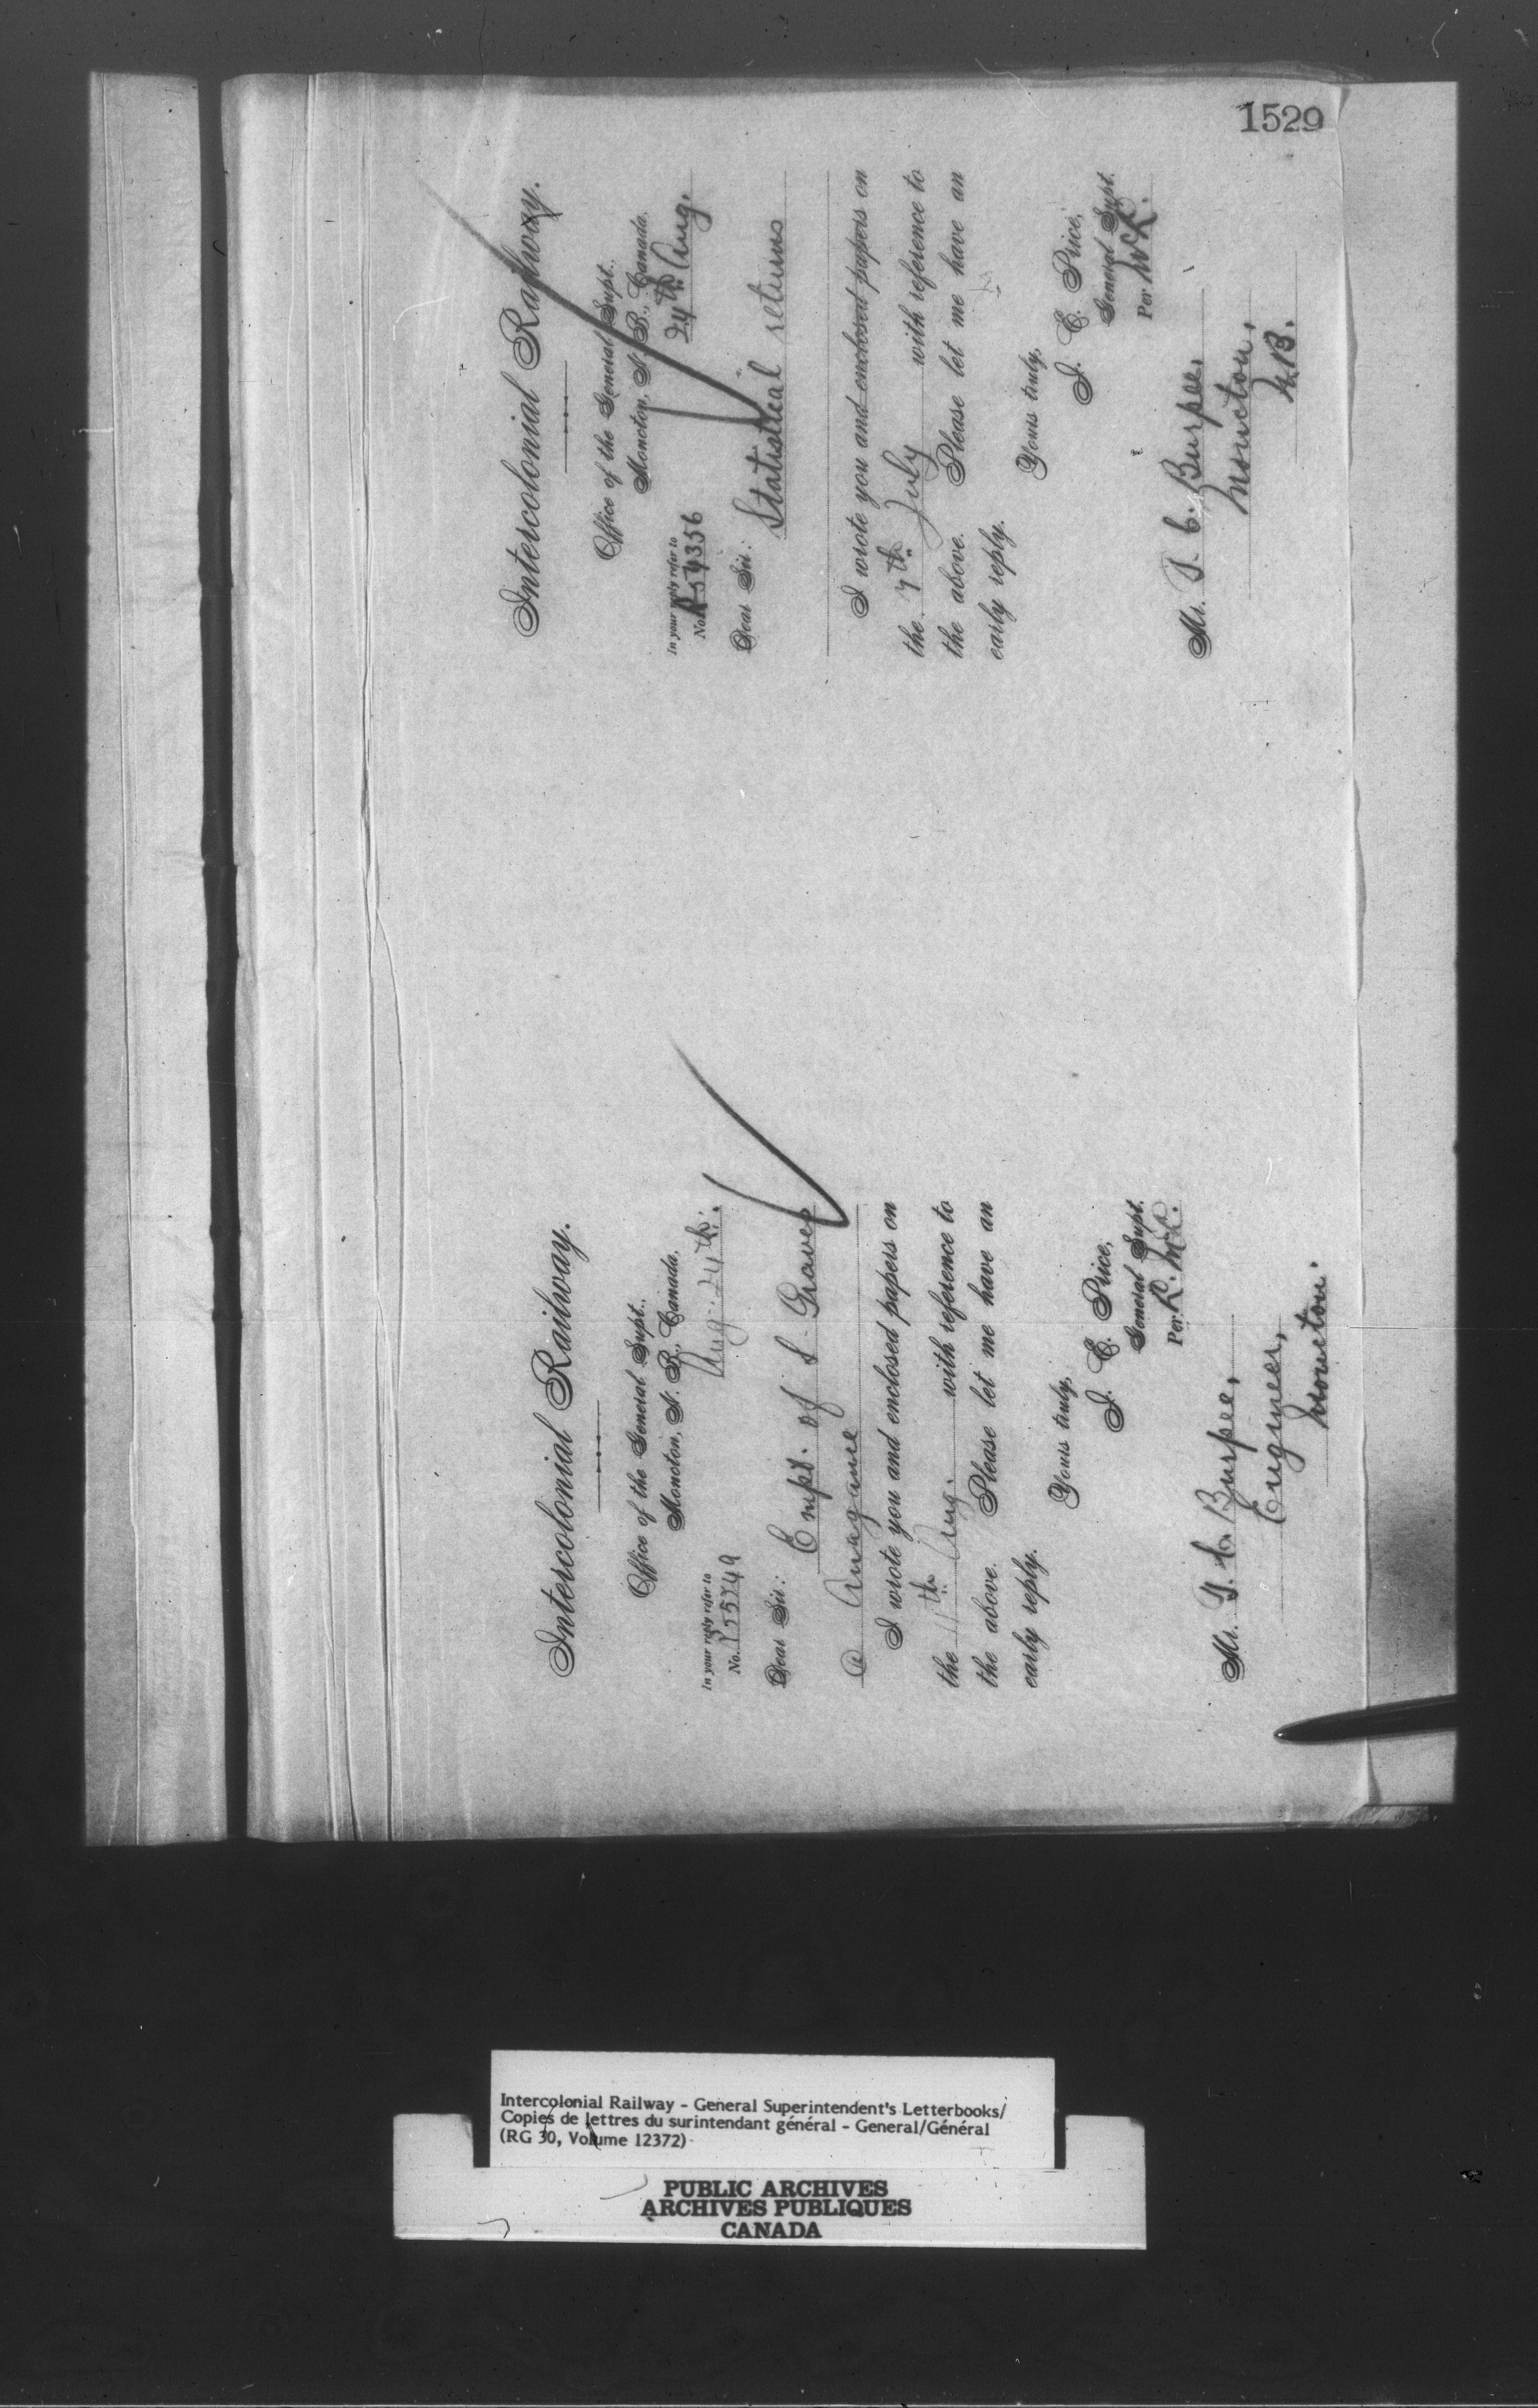 1529
Intercolonial Railway.
Office of the General Supt.,
Moncton, N. B., Canada.
Aug. 24th.
In your reply refer to
No. P55749
Dear Sir:
Empt. of S. Graves
@ Anagance
I wrote you and enclosed papers on
the 11th Aug. with reference to
the above. Please let me have an
early reply.
Yours truly,
J. E. Price,
General Supt.
Per R. McK.
Mr. T. C. Burpee,
Engineer,
Moncton.
Intercolonial Railway.
Office of the General Supt.,
Moncton, N. B., Canada.
24th Aug.
In your reply refer to
No. 54356
Dear Sir:
Statistical returns
I wrote you and enclosed papers on
the 7th July with reference to
the above. Please let me have an
early reply.
Yours truly,
J. E. Price,
General Supt.
Per McK.
Mr. T. C. Burpee,
Moncton,
N.B.
Intercolonial Railway - General Superintendent's Letterbooks/
Copies de lettres du surintendant général - General/Général
(RG 30, Volume 12372)
PUBLIC ARCHIVES
ARCHIVES PUBLIQUES
CANADA